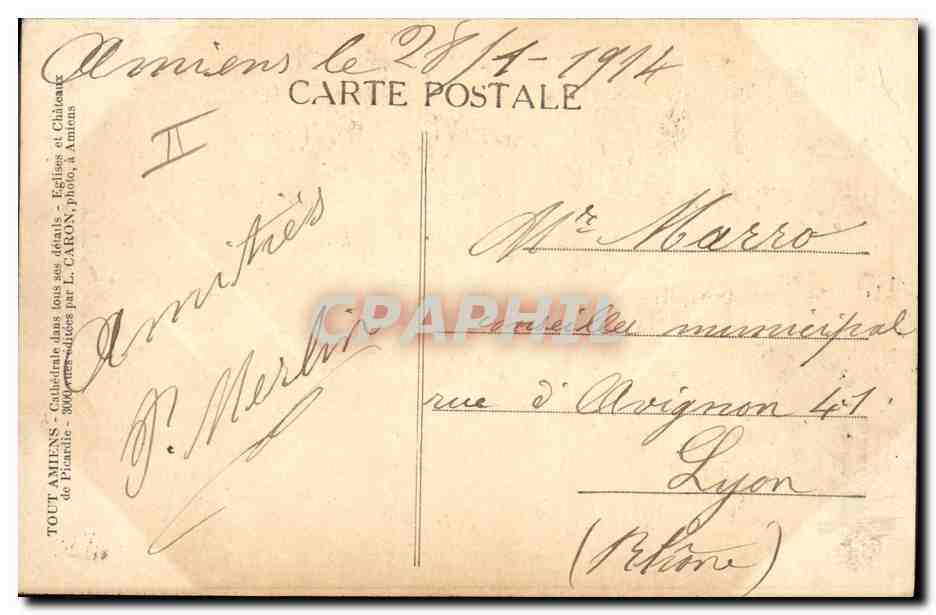 Amiens le 28/1-1914
CARTE POSTALE
II
Amitiés
P. Merlin
Mr. Marro
Conseiller municipal
rue d'Avignon 41
Lyon
(Rhône)
TOUT AMIENS - Cathédrale dans tous ses détails - Eglises et Châteaux
de Picardie - 3000 vues éditées par L. CARON, photo, à Amiens
CPAPHIL